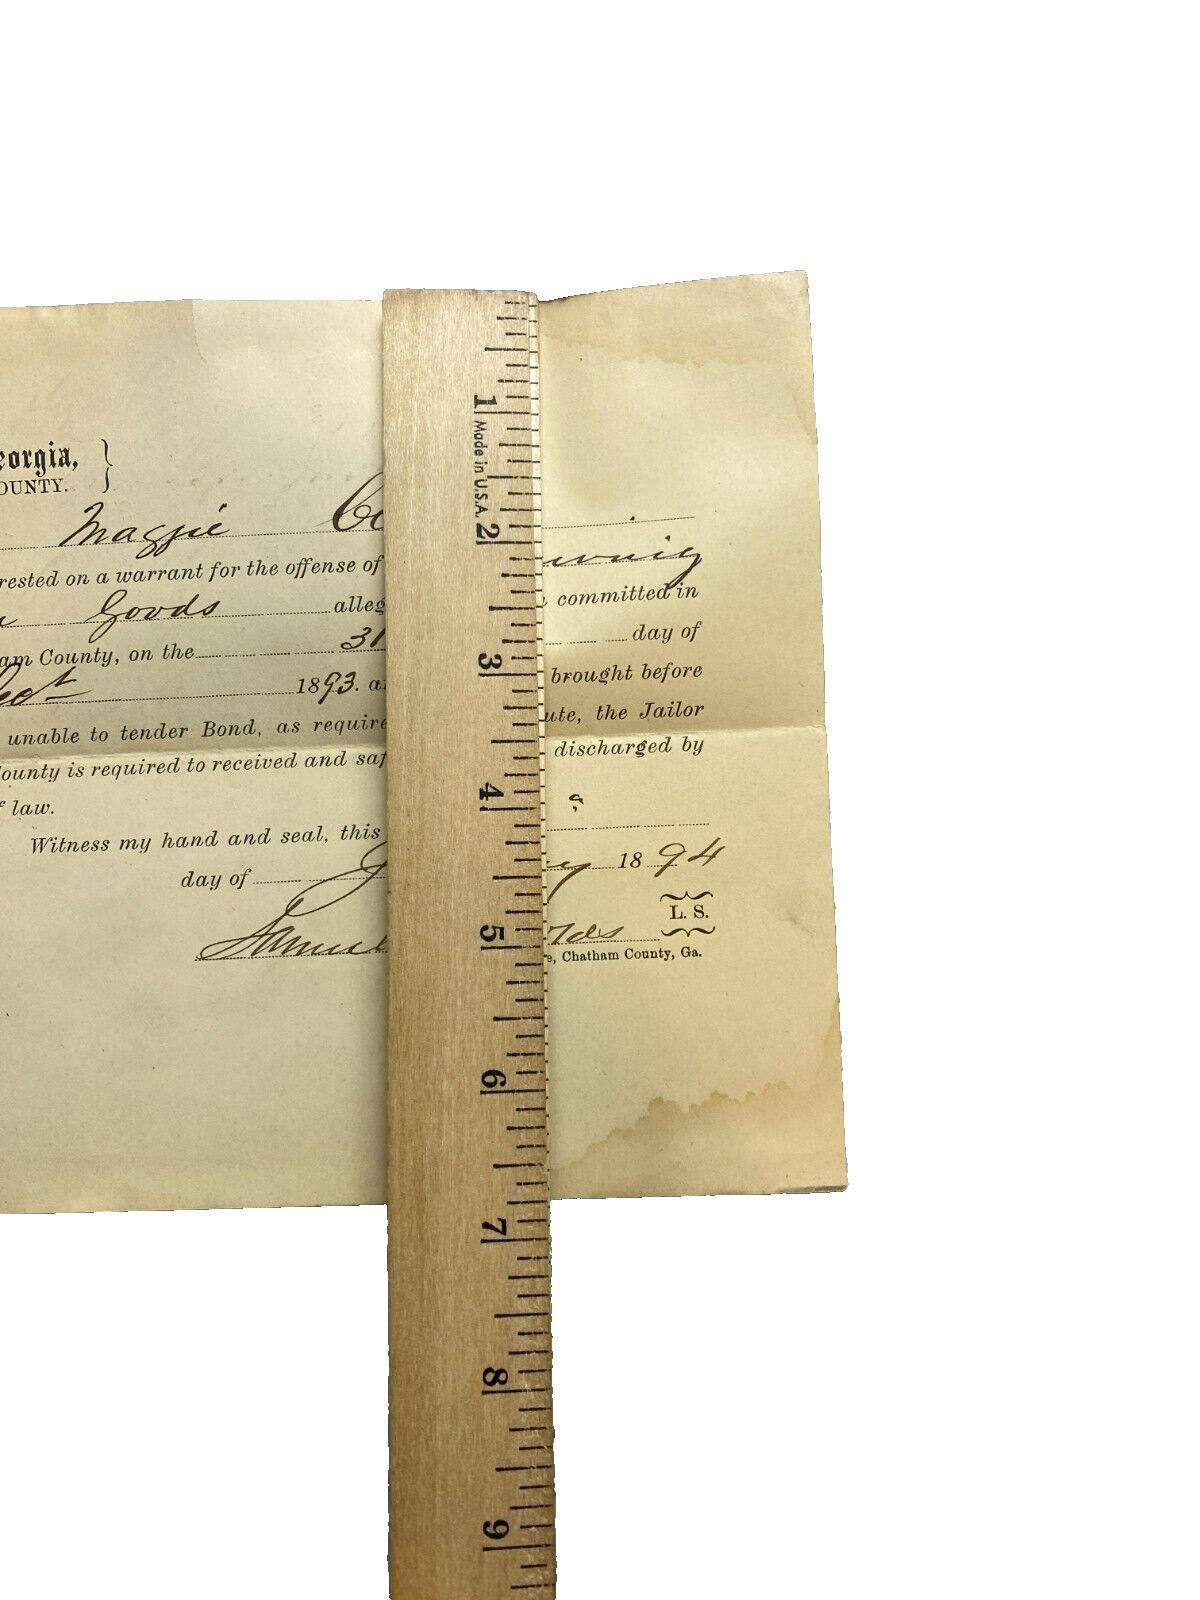 eorgia,
OUNTY.
Maggie
rested on a warrant for the offense of
Goods alleg committed in
am County, on the 31 day of
1893. a brought before
unable to tender Bond, as require ute, the Jailor
ounty is required to received and saf discharged by
f law.
Witness my hand and seal, this
day of y 1894
L. S.
Samuel lds
e, Chatham County, Ga.
1
Made in U.S.A.
2
3
4
5
6
7
8
9